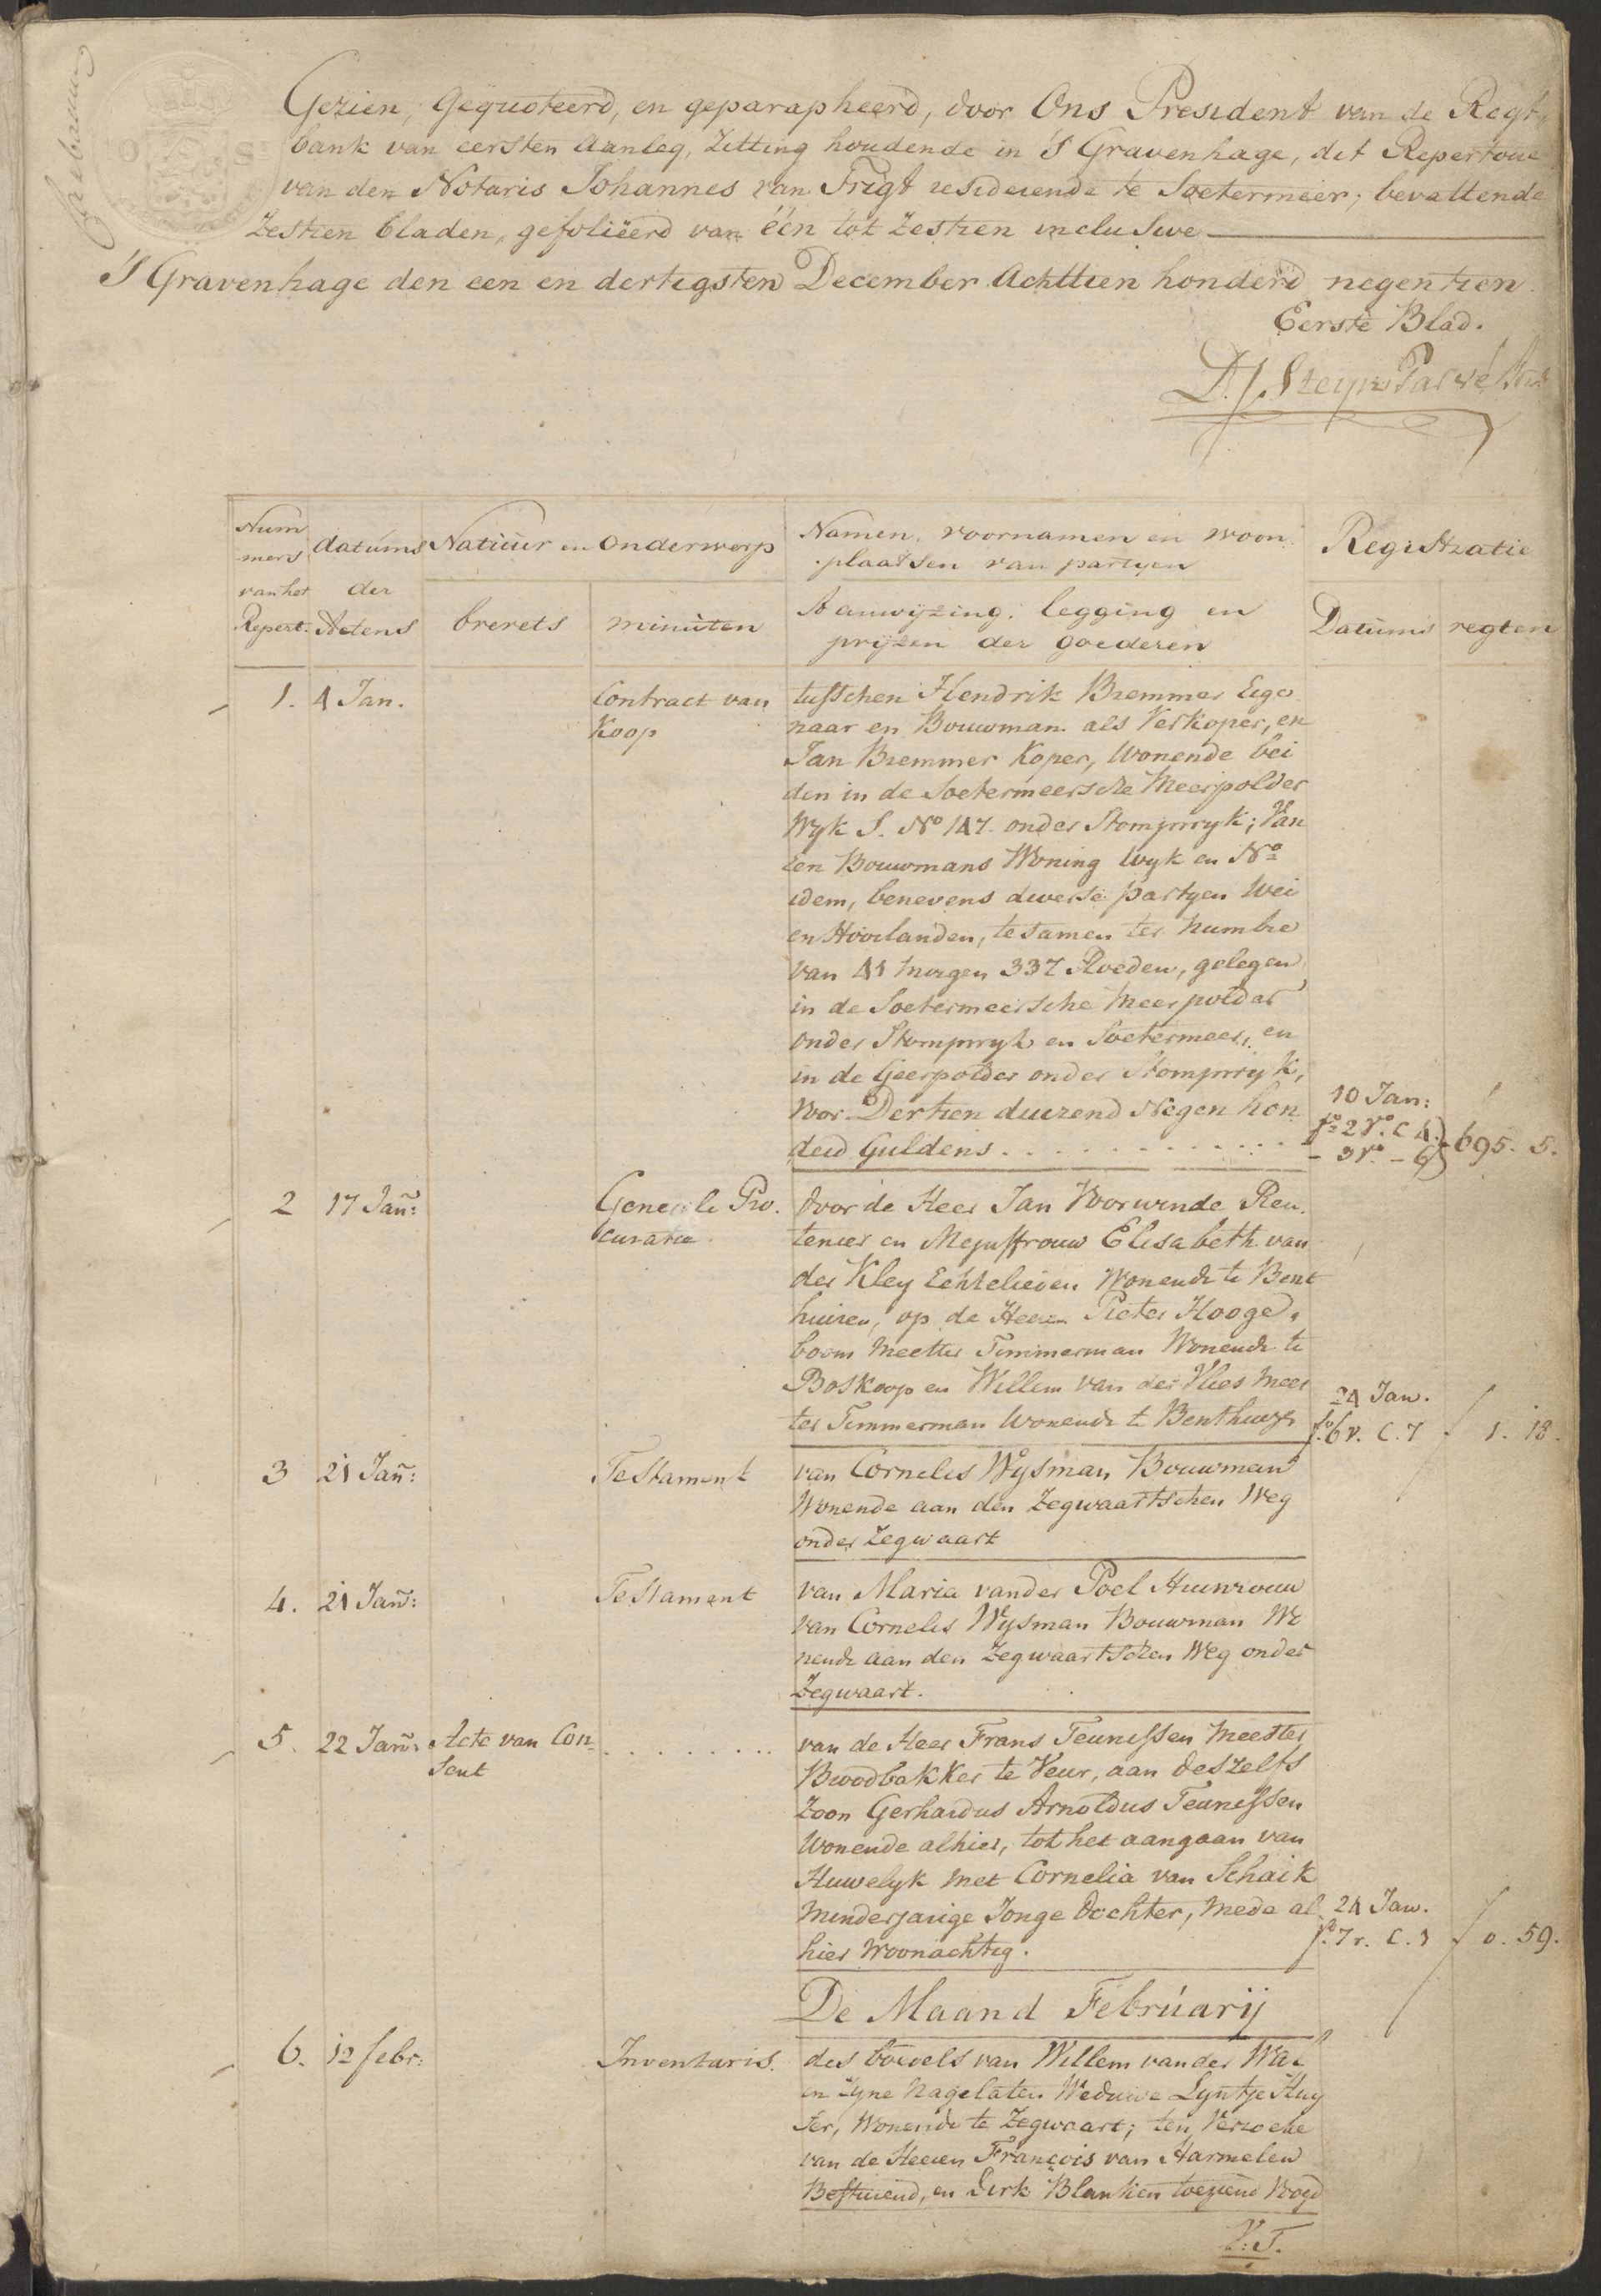 Gezien, Gequoteerd, en geparapheerd, door Ons President van de Regt,
bank van eersten Aanleg, Zitting houdende in 'S Gravenhage, dit Repertoire
van den Notaris Johannes van Frigt resideerende te Soetermeer; bevattende
Zestien bladen, gefoliëerd van één tot Zestien incluSive
'S Gravenhage den een en dertigsten December Achttien honderd negentien.
Eerste Blad.
D. J. Steyn Parvé
Num
mers
van het
Repert.
datums
der
Actens
Natuur en Onderwerp
brevets
minuten
Namen, voornamen en woon
plaatsen van partyen
Aanwijzing, legging en
prijzen der goederen
Registratie
Datums
regten
1. 4 Jan. Contract van tusschen Hendrik Bremmer Eige
Koop naar en Bouwman als Verkoper, en
Jan Bremmer Koper, Wonende bei
den in de Soetermeersche Meerpolder
Wyk S. No 147. onder Stompwyk; Van
een Bouwmans Woning Wyk en No
idem, benevens diverse partyen Wei
en Hooilanden, te samen ter Numbre
van 41 Morgen 337 Roeden, gelegen
in de Soetermeersche Meerpolder
onder Stompwyk en Soetermeer, en
in de Geerpolder onder Stompwyk,
voor Dertien duizend Negen hon 10 Jan:
derd Guldens . . . . . . . . . . . fo 2 Vo. C 4. 695. 5.
- 3 Vo. - 6
2 17 Jan: Generale Pro. door de Heer Jan Voorwinde Ren.
curatie. tenier en Mejuffrouw Elisabeth van
der Kley Echtelieden Wonende te Bent
huizen, op de Heeren Pieter Hooge,
boom Meester Timmerman Wonende te
Boskoop en Willem van der Vlies Mees 24 Jan.
ter Timmerman Wonende te Benthuiz fo. 6 v. C. 7 1. 18.
3 21 Jan: Testament van Cornelis Wysman Bouwman
Wonende aan den Zegwaartschen Weg
onder Zegwaart
4. 21 Jan: Testament van Maria vander Poel Huisvrouw
van Cornelis Wysman Bouwman Wo
nende aan den Zegwaartschen Weg onder
Zegwaart.
5. 22 Jan: Acte van Con- . . . . . . . . . van de Heer Frans Teunissen Meester
sent Broodbakker te Veur, aan deszelfs
Zoon Gerhardus Arnoldus Teunissen
Wonende alhier, tot het aangaan van
Huwelyk met Cornelia van Schaik
Minderjarige Jonge Dochter, mede al 24 Jan.
hier Woonachtig. fo. 7 r. C. 1 0. 59.
De Maand Februarij
6. 12 febr: Inventaris. des boedels van Willem vander Wal
en zyne Nagelaten Weduwe Lyntje Huy
ser, Wonende te Zegwaart; ten Verzoeke
van de Heeren François van Harmelen
Besturend, en Dirk Blanken toeziend Voogd
V: T.